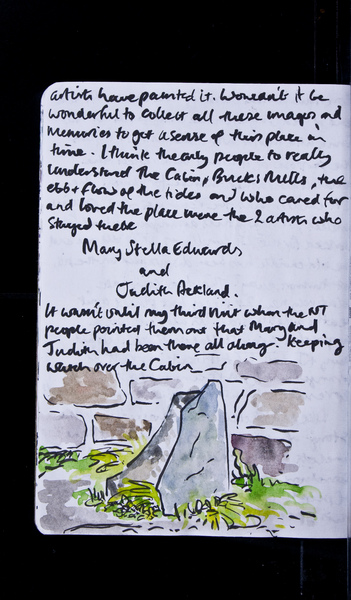 artists have painted it. Wouldn't it be
wonderful to collect all these images and
memories to get a sense of this place in
time. I think the only people to really
understand The Cabin, Bucks Mills, the
ebb + flow of the tides and who cared for
and loved the place were the 2 artists who
stayed there
Mary Stella Edwards
and
Judith Ackland.
It wasn't until my third visit when the NT
people pointed them out that Mary and
Judith had been there all along. Keeping
watch over the Cabin